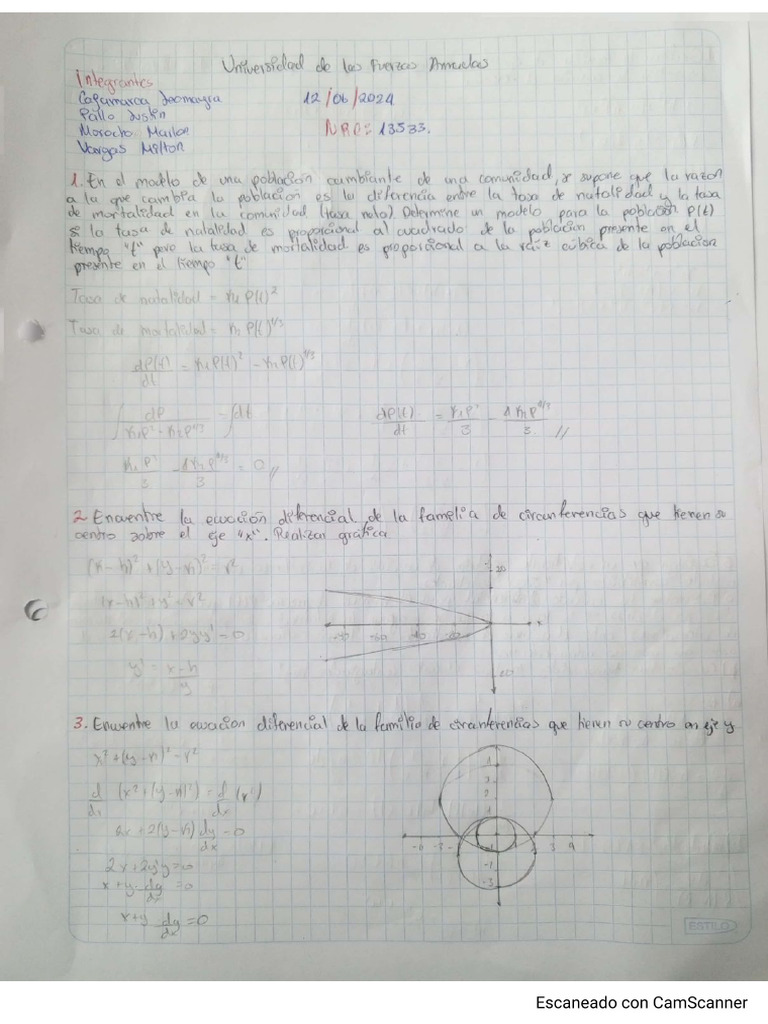 Universidad de las Fuerzas Armadas
Integrantes
Cajamarca Jeomayra 12/06/2024
Pallo Justin
Morocho Marlon NRC= 13533.
Vargas Milton
1. En el modelo de una población cambiante de una comunidad, se supone que la razon
a la que cambia la población es la diferencia entre la tasa de natalidad y la tasa
de mortalidad en la comunidad (tasa neta). Determine un modelo para la población P(t)
si la tasa de natalidad es proporcional al cuadrado de la población presente en el
tiempo "t" pero la tasa de mortalidad es proporcional a la raíz cúbica de la población
presente en el tiempo "t"
Tasa de natalidad = k1 P(t)^2
Tasa de mortalidad = k2 P(t)^1/3
dP(t)/dt = k1 P(t)^2 - k2 P(t)^1/3
∫ dP/(k1P^2 - k2P^1/3) = ∫dt
2 Encuentre la ecuación diferencial de la familia de circunferencias que tienen su
centro sobre el eje "x". Realizar gráfica
(x-h)^2 + (y-k)^2 = r^2
(x-h)^2 + y^2 = r^2
2(x-h) + 2yy' = 0
y' = x-h/y
x
3. Encuentre la ecuacion diferencial de la familia de circunferencias que tienen su centro en eje y
x^2 + (y-k)^2 = r^2
d/dx (x^2 + (y-k)^2) = d/dx (r^2)
2x + 2(y-k) dy/dx = 0
2x + 2y'y = 0
x + y · dy/dx = 0
x + y dy/dx = 0
ESTILO
Escaneado con CamScanner